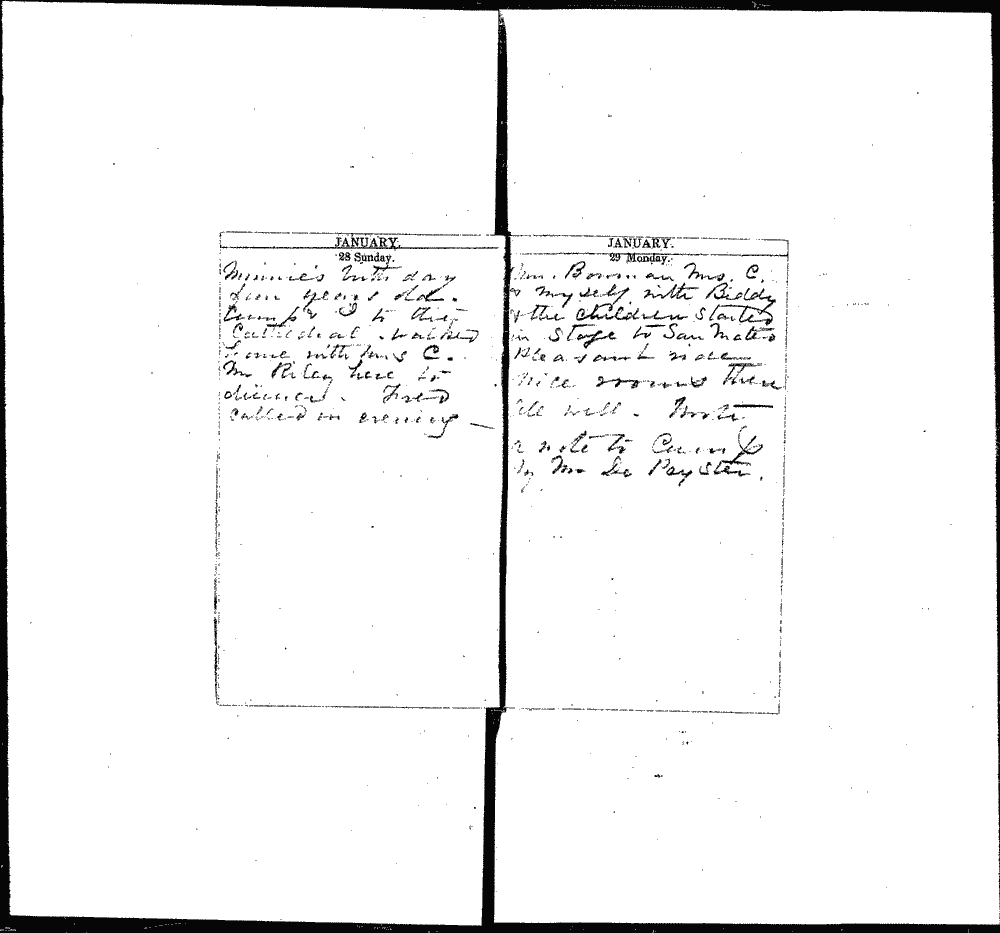 JANUARY.
28 Sunday.
Minnie's birth day
years old.
Cump & I to the
Cathedral. walked
home with Mrs C.
Mr Riley here to
dinner. Fred
called in evening —
JANUARY.
29 Monday.
Bowman Mrs. C.
& myself with Biddy
& the children started
in Stage to San Mateo
Pleasant ride
nice rooms there
all well. Wrote
a note to Cump
by Mr De Peyster.